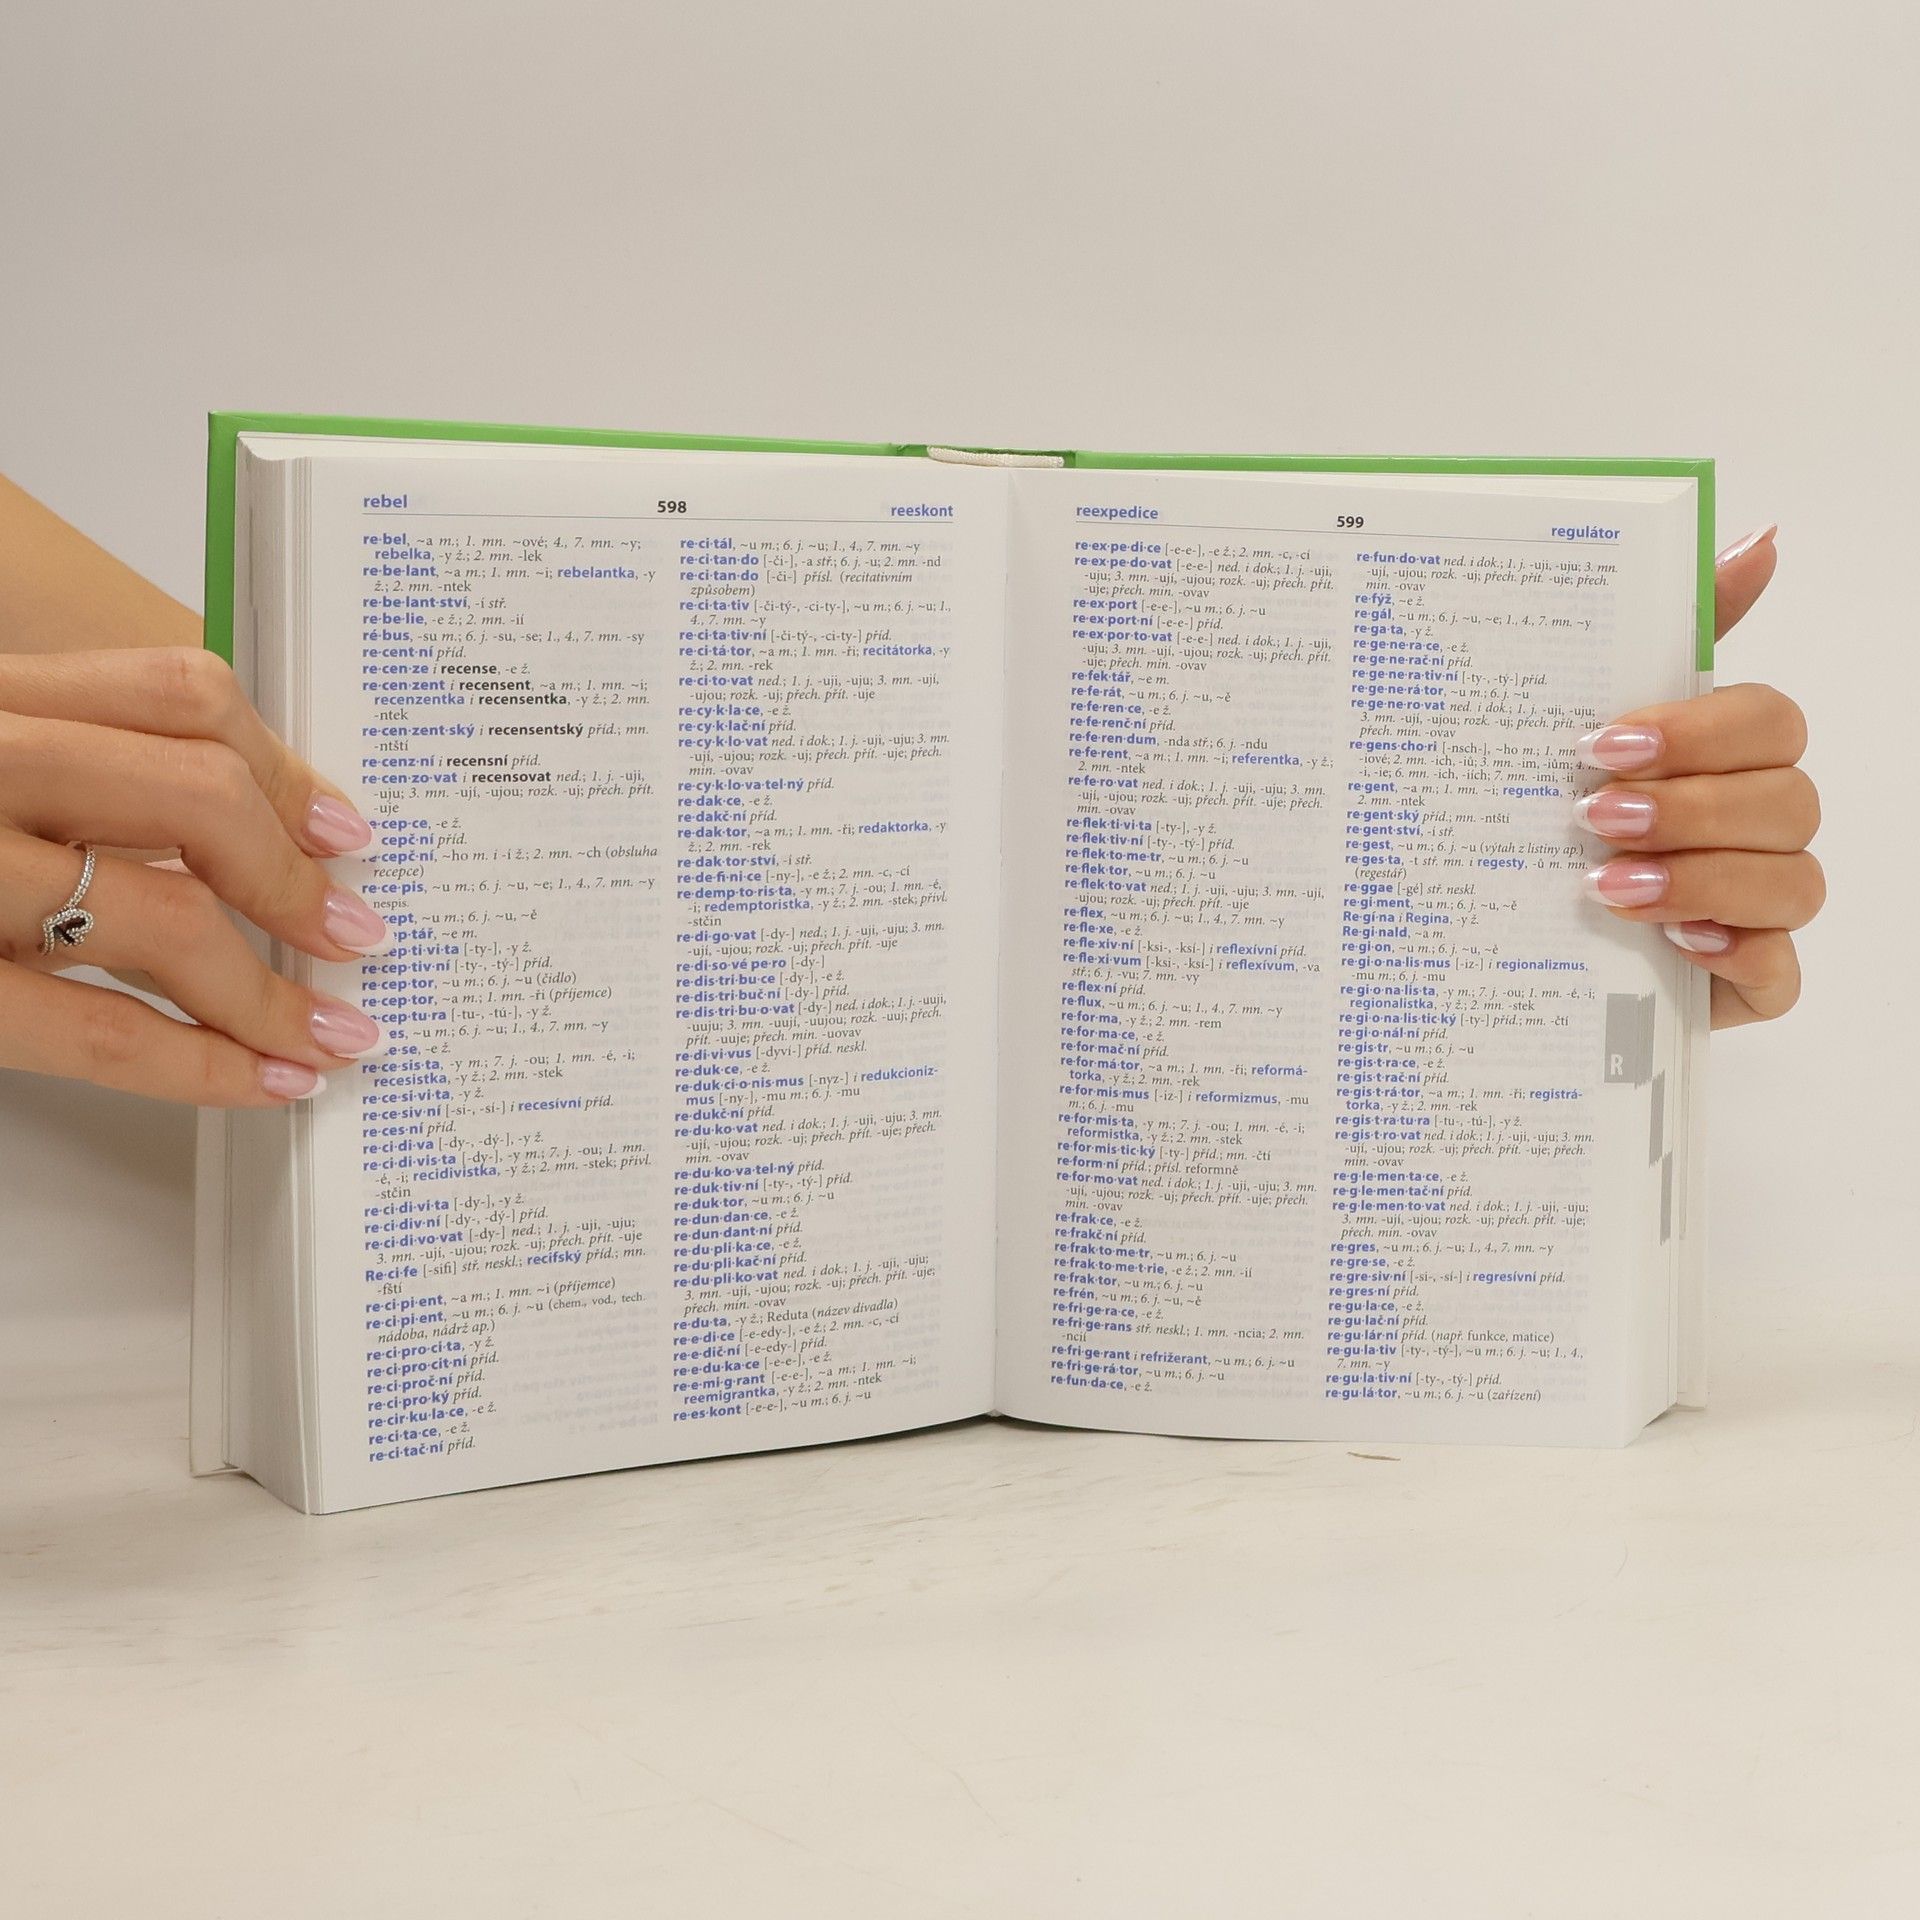 rebel 598 reeskont
re·bel, ~a m.; 1. mn. ~ové; 4., 7. mn. ~y;
rebelka, -y ž.; 2. mn. -lek
re·be·lant, ~a m.; 1. mn. ~i; rebelantka, -y
ž.; 2. mn. -ntek
re·be·lant·ství, -í stř.
re·be·lie, -e ž.; 2. mn. -ií
ré·bus, -su m.; 6. j. -su, -se; 1., 4., 7. mn. -sy
re·cent·ní příd.
re·cen·ze i recense, -e ž.
re·cen·zent i recensent, ~a m.; 1. mn. ~i;
recenzentka i recensentka, -y ž.; 2. mn.
-ntek
re·cen·zent·ský i recensentský příd.; mn.
-ntští
re·cenz·ní i recensní příd.
re·cen·zo·vat i recensovat ned.; 1. j. -uji,
-uju; 3. mn. -ují, -ujou; rozk. -uj; přech. přít.
-uje
e·cep·ce, -e ž.
cepč·ní příd.
cepč·ní, ~ho m. i -í ž.; 2. mn. ~ch (obsluha
recepce)
re·ce·pis, ~u m.; 6. j. ~u, ~e; 1., 4., 7. mn. ~y
nespis.
cept, ~u m.; 6. j. ~u, ~ě
ep·tář, ~e m.
cep·ti·vi·ta [-ty-], -y ž.
re·cep·tiv·ní [-ty-, -tý-] příd.
re·cep·tor, ~u m.; 6. j. ~u (čidlo)
re·cep·tor, ~a m.; 1. mn. -ři (příjemce)
cep·tu·ra [-tu-, -tú-], -y ž.
es, ~u m.; 6. j. ~u; 1., 4., 7. mn. ~y
ce·se, -e ž.
re·ce·sis·ta, -y m.; 7. j. -ou; 1. mn. -é, -i;
recesistka, -y ž.; 2. mn. -stek
re·ce·si·vi·ta, -y ž.
re·ce·siv·ní [-si-, -sí-] i recesívní příd.
re·ces·ní příd.
re·ci·di·va [-dy-, -dý-], -y ž.
re·ci·di·vis·ta [-dy-], -y m.; 7. j. -ou; 1. mn.
-é, -i; recidivistka, -y ž.; 2. mn. -stek; přivl.
-stčin
re·ci·di·vi·ta [-dy-], -y ž.
re·ci·div·ní [-dy-, -dý-] příd.
re·ci·di·vo·vat [-dy-] ned.; 1. j. -uji, -uju;
3. mn. -ují, -ujou; rozk. -uj; přech. přít. -uje
Re·ci·fe [-sifi] stř. neskl.; recifský příd.; mn.
-fští
re·ci·pi·ent, ~a m.; 1. mn. ~i (příjemce)
re·ci·pi·ent, ~u m.; 6. j. ~u (chem., vod., tech.
nádoba, nádrž ap.)
re·ci·pro·ci·ta, -y ž.
re·ci·pro·cit·ní příd.
re·ci·proč·ní příd.
re·ci·pro·ký příd.
re·cir·ku·la·ce, -e ž.
re·ci·ta·ce, -e ž.
re·ci·tač·ní příd.
re·ci·tál, ~u m.; 6. j. ~u; 1., 4., 7. mn. ~y
re·ci·tan·do [-či-], -a stř.; 6. j. -u; 2. mn. -nd
re·ci·tan·do [-či-] přísl. (recitativním
způsobem)
re·ci·ta·tiv [-či-tý-, -ci-ty-], ~u m.; 6. j. ~u; 1.,
4., 7. mn. ~y
re·ci·ta·tiv·ní [-či-tý-, -ci-ty-] příd.
re·ci·tá·tor, ~a m.; 1. mn. -ři; recitátorka, -y
ž.; 2. mn. -rek
re·ci·to·vat ned.; 1. j. -uji, -uju; 3. mn. -ují,
-ujou; rozk. -uj; přech. přít. -uje
re·cy·k·la·ce, -e ž.
re·cy·k·lač·ní příd.
re·cy·k·lo·vat ned. i dok.; 1. j. -uji, -uju; 3. mn.
-ují, -ujou; rozk. -uj; přech. přít. -uje; přech.
min. -ovav
re·cy·k·lo·va·tel·ný příd.
re·dak·ce, -e ž.
re·dakč·ní příd.
re·dak·tor, ~a m.; 1. mn. -ři; redaktorka, -y
ž.; 2. mn. -rek
re·dak·tor·ství, -í stř.
re·de·fi·ni·ce [-ny-], -e ž.; 2. mn. -c, -cí
re·demp·to·ris·ta, -y m.; 7. j. -ou; 1. mn. -é,
-i; redemptoristka, -y ž.; 2. mn. -stek; přivl.
-stčin
re·di·go·vat [-dy-] ned.; 1. j. -uji, -uju; 3. mn.
-ují, -ujou; rozk. -uj; přech. přít. -uje
re·di·so·vé pe·ro [-dy-]
re·dis·tri·bu·ce [-dy-], -e ž.
re·dis·tri·buč·ní [-dy-] příd.
re·dis·tri·bu·o·vat [-dy-] ned. i dok.; 1. j. -uuji,
-uuju; 3. mn. -uují, -uujou; rozk. -uuj; přech.
přít. -uuje; přech. min. -uovav
re·di·vi·vus [-dyví-] příd. neskl.
re·duk·ce, -e ž.
re·duk·ci·o·nis·mus [-nyz-] i redukcioniz-
mus [-ny-], -mu m.; 6. j. -mu
re·dukč·ní příd.
re·du·ko·vat ned. i dok.; 1. j. -uji, -uju; 3. mn.
-ují, -ujou; rozk. -uj; přech. přít. -uje; přech.
min. -ovav
re·du·ko·va·tel·ný příd.
re·duk·tiv·ní [-ty-, -tý-] příd.
re·duk·tor, ~u m.; 6. j. ~u
re·dun·dan·ce, -e ž.
re·dun·dant·ní příd.
re·du·pli·ka·ce, -e ž.
re·du·pli·kač·ní příd.
re·du·pli·ko·vat ned. i dok.; 1. j. -uji, -uju;
3. mn. -ují, -ujou; rozk. -uj; přech. přít. -uje;
přech. min. -ovav
re·du·ta, -y ž.; Reduta (název divadla)
re·e·di·ce [-e-edy-], -e ž.; 2. mn. -c, -cí
re·e·dič·ní [-e-edy-] příd.
re·e·du·ka·ce [-e-e-], -e ž.
re·e·mi·g·rant [-e-e-], ~a m.; 1. mn. ~i;
reemigrantka, -y ž.; 2. mn. -ntek
re·es·kont [-e-e-], ~u m.; 6. j. ~u
reexpedice 599 regulátor
re·ex·pe·di·ce [-e-e-], -e ž.; 2. mn. -c, -cí
re·ex·pe·do·vat [-e-e-] ned. i dok.; 1. j. -uji,
-uju; 3. mn. -ují, -ujou; rozk. -uj; přech. přít.
-uje; přech. min. -ovav
re·ex·port [-e-e-], ~u m.; 6. j. ~u
re·ex·port·ní [-e-e-] příd.
re·ex·por·to·vat [-e-e-] ned. i dok.; 1. j. -uji,
-uju; 3. mn. -ují, -ujou; rozk. -uj; přech. přít.
-uje; přech. min. -ovav
re·fek·tář, ~e m.
re·fe·rát, ~u m.; 6. j. ~u, ~ě
re·fe·ren·ce, -e ž.
re·fe·renč·ní příd.
re·fe·ren·dum, -nda stř.; 6. j. -ndu
re·fe·rent, ~a m.; 1. mn. ~i; referentka, -y ž.;
2. mn. -ntek
re·fe·ro·vat ned. i dok.; 1. j. -uji, -uju; 3. mn.
-ují, -ujou; rozk. -uj; přech. přít. -uje; přech.
min. -ovav
re·flek·ti·vi·ta [-ty-], -y ž.
re·flek·tiv·ní [-ty-, -tý-] příd.
re·flek·to·me·tr, ~u m.; 6. j. ~u
re·flek·tor, ~u m.; 6. j. ~u
re·flek·to·vat ned.; 1. j. -uji, -uju; 3. mn. -ují,
-ujou; rozk. -uj; přech. přít. -uje
re·flex, ~u m.; 6. j. ~u; 1., 4., 7. mn. ~y
re·fle·xe, -e ž.
re·fle·xiv·ní [-ksi-, -ksí-] i reflexívní příd.
re·fle·xi·vum [-ksi-, -ksí-] i reflexívum, -va
stř.; 6. j. -vu; 7. mn. -vy
re·flex·ní příd.
re·flux, ~u m.; 6. j. ~u; 1., 4., 7. mn. ~y
re·for·ma, -y ž.; 2. mn. -rem
re·for·ma·ce, -e ž.
re·for·mač·ní příd.
re·for·má·tor, ~a m.; 1. mn. -ři; reformá-
torka, -y ž.; 2. mn. -rek
re·for·mis·mus [-iz-] i reformizmus, -mu
m.; 6. j. -mu
re·for·mis·ta, -y m.; 7. j. -ou; 1. mn. -é, -i;
reformistka, -y ž.; 2. mn. -stek
re·for·mis·tic·ký [-ty-] příd.; mn. -čtí
re·form·ní příd.; přísl. reformně
re·for·mo·vat ned. i dok.; 1. j. -uji, -uju; 3. mn.
-ují, -ujou; rozk. -uj; přech. přít. -uje; přech.
min. -ovav
re·frak·ce, -e ž.
re·frakč·ní příd.
re·frak·to·me·tr, ~u m.; 6. j. ~u
re·frak·to·me·t·rie, -e ž.; 2. mn. -ií
re·frak·tor, ~u m.; 6. j. ~u
re·frén, ~u m.; 6. j. ~u, ~ě
re·fri·ge·ra·ce, -e ž.
re·fri·ge·rans stř. neskl.; 1. mn. -ncia; 2. mn.
-ncií
re·fri·ge·rant i refrižerant, ~u m.; 6. j. ~u
re·fri·ge·rá·tor, ~u m.; 6. j. ~u
re·fun·da·ce, -e ž.
re·fun·do·vat ned. i dok.; 1. j. -uji, -uju; 3. mn.
-ují, -ujou; rozk. -uj; přech. přít. -uje; přech.
min. -ovav
re·fýž, ~e ž.
re·gál, ~u m.; 6. j. ~u, ~e; 1., 4., 7. mn. ~y
re·ga·ta, -y ž.
re·ge·ne·ra·ce, -e ž.
re·ge·ne·rač·ní příd.
re·ge·ne·ra·tiv·ní [-ty-, -tý-] příd.
re·ge·ne·rá·tor, ~u m.; 6. j. ~u
re·ge·ne·ro·vat ned. i dok.; 1. j. -uji, -uju;
3. mn. -ují, -ujou; rozk. -uj; přech. přít. -uje;
přech. min. -ovav
re·gens·cho·ri [-nsch-], ~ho m.; 1. mn
-iové; 2. mn. -ich, -iů; 3. mn. -im, -iům; 4.
-i, -ie; 6. mn. -ich, -iích; 7. mn. -imi, -ii
re·gent, ~a m.; 1. mn. ~i; regentka, -y ž.
2. mn. -ntek
re·gent·ský příd.; mn. -ntští
re·gent·ství, -í stř.
re·gest, ~u m.; 6. j. ~u (výtah z listiny ap.)
re·ges·ta, -t stř. mn. i regesty, -ů m. mn.
(regestář)
re·ggae [-gé] stř. neskl.
re·gi·ment, ~u m.; 6. j. ~u, ~ě
Re·gí·na i Regina, -y ž.
Re·gi·nald, ~a m.
re·gi·on, ~u m.; 6. j. ~u, ~ě
re·gi·o·na·lis·mus [-iz-] i regionalizmus,
-mu m.; 6. j. -mu
re·gi·o·na·lis·ta, -y m.; 7. j. -ou; 1. mn. -é, -i;
regionalistka, -y ž.; 2. mn. -stek
re·gi·o·na·lis·tic·ký [-ty-] příd.; mn. -čtí
re·gi·o·nál·ní příd.
re·gis·tr, ~u m.; 6. j. ~u
re·gis·t·ra·ce, -e ž.
re·gis·t·rač·ní příd.
re·gis·t·rá·tor, ~a m.; 1. mn. -ři; registrá-
torka, -y ž.; 2. mn. -rek
re·gis·t·ra·tu·ra [-tu-, -tú-], -y ž.
re·gis·t·ro·vat ned. i dok.; 1. j. -uji, -uju; 3. mn.
-ují, -ujou; rozk. -uj; přech. přít. -uje; přech.
min. -ovav
re·g·le·men·ta·ce, -e ž.
re·g·le·men·tač·ní příd.
re·g·le·men·to·vat ned. i dok.; 1. j. -uji, -uju;
3. mn. -ují, -ujou; rozk. -uj; přech. přít. -uje;
přech. min. -ovav
re·gres, ~u m.; 6. j. ~u; 1., 4., 7. mn. ~y
re·gre·se, -e ž.
re·gre·siv·ní [-si-, -sí-] i regresívní příd.
re·gres·ní příd.
re·gu·la·ce, -e ž.
re·gu·lač·ní příd.
re·gu·lár·ní příd. (např. funkce, matice)
re·gu·la·tiv [-ty-, -tý-], ~u m.; 6. j. ~u; 1., 4.,
7. mn. ~y
re·gu·la·tiv·ní [-ty-, -tý-] příd.
re·gu·lá·tor, ~u m.; 6. j. ~u (zařízení)
R